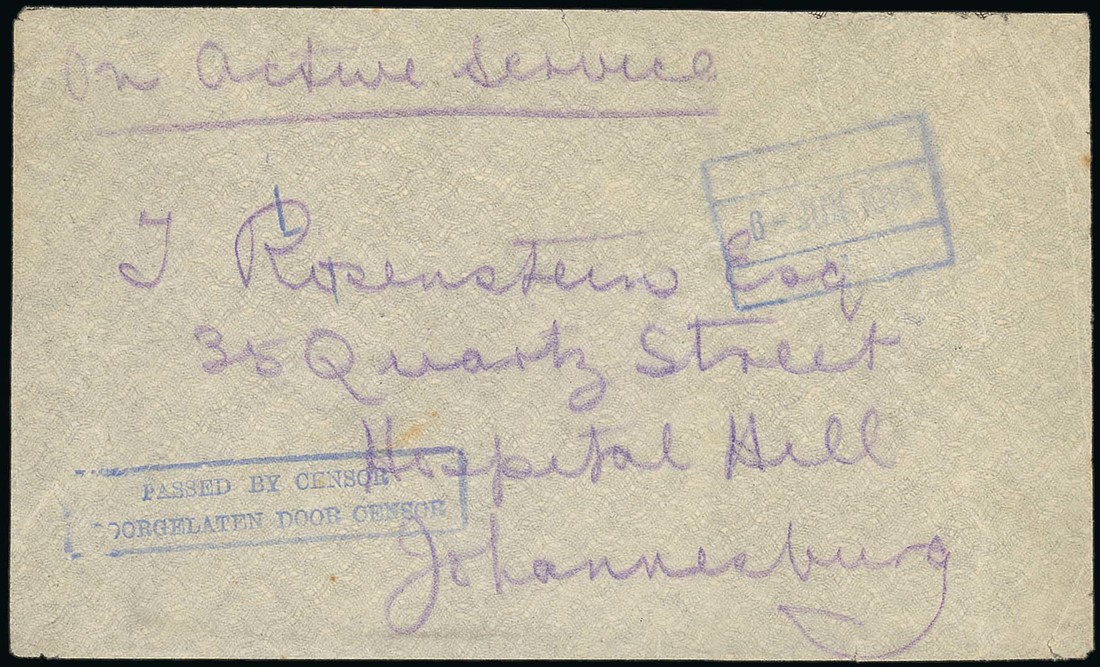 On Active Service
J Rosenstein Esq
35 Quartz Street
Hospital Hill
Johannesburg
PASSED BY CENSOR
DOORGELATEN DOOR CENSOR